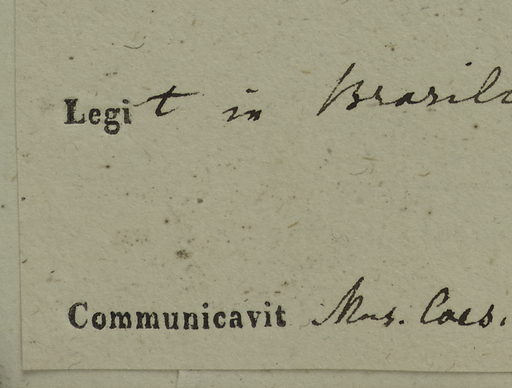 Legit in Brasili
Communicavit Mus. Caes.